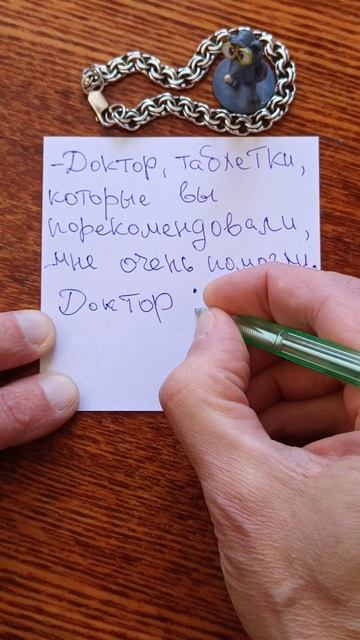 -Доктор, таблетки,
которые вы
порекомендовали,
мне очень помогли.
Доктор :